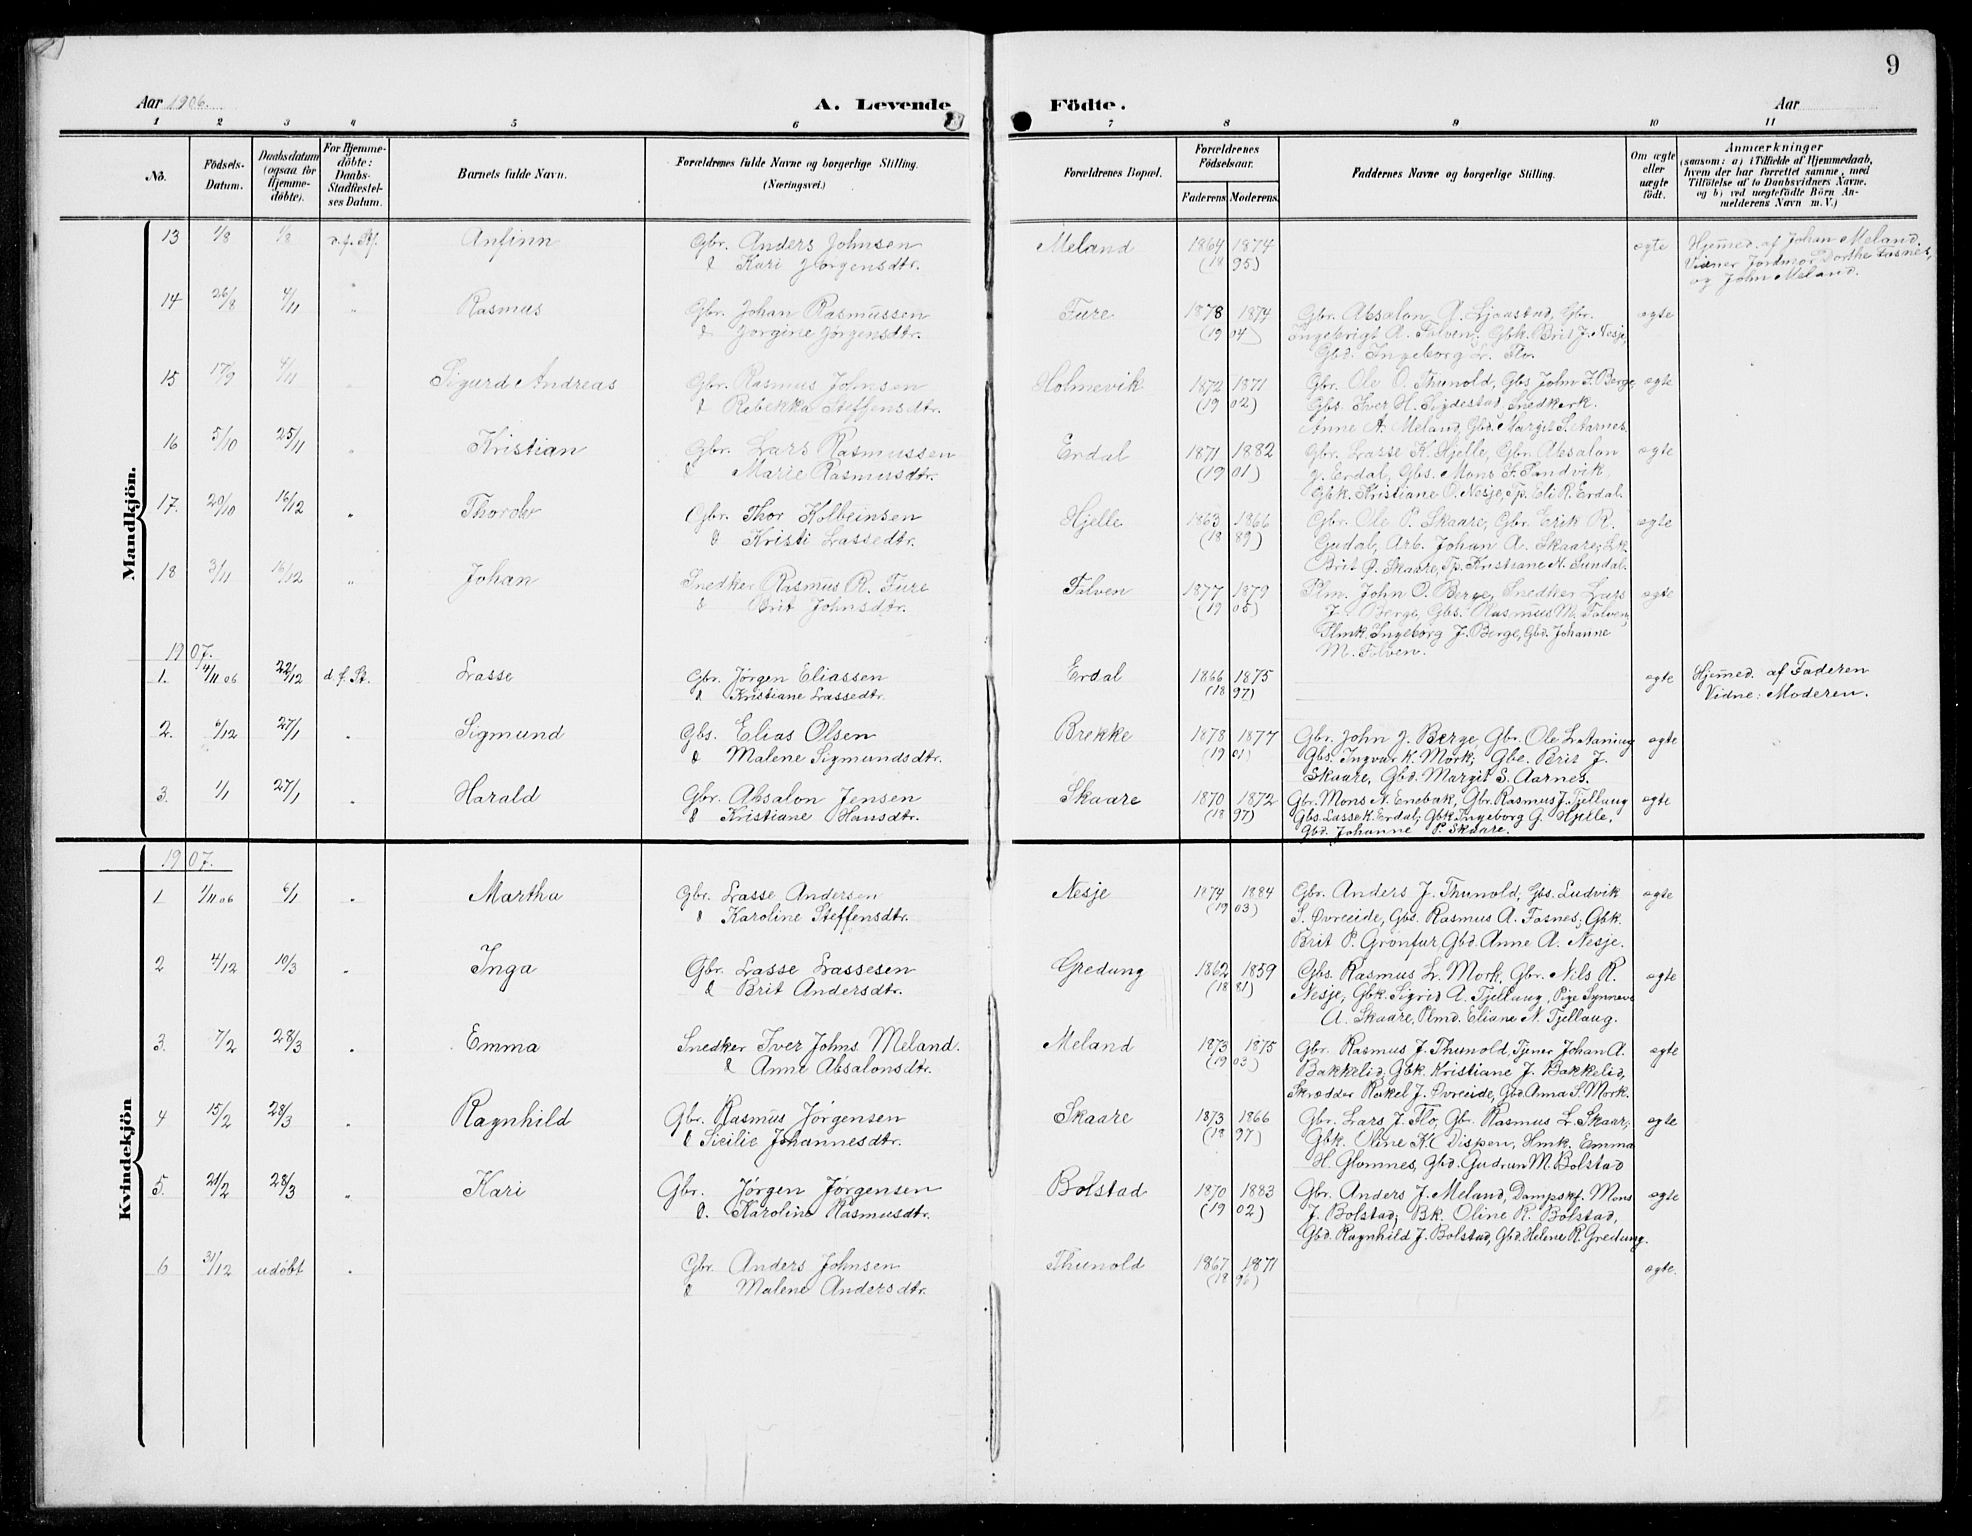 9
Aar 1906. A. Levende Födte. Aar
1 2 3 4 5 6 7 8 9 10 11
No. Födsels-Datum. Daabsdatum (ogsaa for Hjemme-döbte). For Hjemme-döbte: Daabs-Stadfæstel-ses Datum. Barnets fulde Navn. Forældrenes fulde Navne og borgerlige Stilling. (Næringsvei.) Forældrenes Bopæl. Forældrenes Födselsaar. Faderens Moderens. Faddernes Navne og borgerlige Stilling. Om ægte eller uægte födt. Anmærkninger (saasom: a) i Tilfælde af Hjemmedaab, hvem der har forrettet samme, med Tilföielse af to Daabsvidners Navne. og b) ved uægtefödte Börn An-melderens Navn m. V.)
Mandkjön.
13 1/8 1/8 Anfinn Gbr. Anders Johnsen Meland 1864 1874 ægte Hjemmed. af Johan Meland.
& Kari Jørgensdtr. (18 95) Vidner Jordmor Dorthe Fosnes,
og John Meland.
14 26/8 4/11 " Rasmus Gbr. Johan Rasmussen Ture 1878 1874 Gbr. Absalon A. Ljosstad, Gbr. ægte
& Jorgine Jørgensdtr. (19 04) Ingebrigt A. Tolven, Gbk. Brit J. Nesje,
Gbd. Ingeborg L. Flo.
15 17/9 4/11 " Sigurd Andreas Gbr. Rasmus Johnsen Holmevik 1872 1871 Gbr. Ole O. Thunold, Gbs. John J. Berge, ægte
& Rebekka Steffensdtr. (19 02) Gbs. Iver H. Sigdestad, Snedkerk.
Anne A. Meland, Gbd. Margit S. Aarnes.
16 5/10 25/11 " Kristian Gbr. Lars Rasmussen Erdal 1871 1882 Gbr. Lasse K. Hjelle, Gbr. Absalon ægte
& Marie Rasmusdtr. (19 01) J. Erdal, Gbs. Mons F. Sandvik
Gbk. Kristiane O. Nesje, Tp. Eli R. Erdal.
17. 29/10 16/12 " Gbr. Thor Kolbeinsen Hjelle 1863 1866 Gbr. Ole P. Skaare, Gbr. Erik R. ægte
& Kristi Lassedtr. (18 89) Gudal, Arb. Johan A. Skaare;
Brit P. Skaare, Tp. Kristiane N. Sundal.
18 3/11 16/12 " Johan Snedker Rasmus R. Ture Tolven 1877 1879 Plm. John O. Berge, Snedker Lars ægte
& Brit Johnsdtr. (19 05) J. Berge, Gbs. Rasmus M. Tolven,
Plmk. Ingeborg J. Berge, Gbd. Johanne
M. Tolven.
1907.
1. 4/11 06 22/12 d. f. St. Lasse Gbr. Jørgen Eliassen Erdal 1866 1875 ægte Hjemmed. af Faderen
& Kristiane Lassedtr. (18 97) Vidne: Moderen.
2. 6/12 27/1 " Sigmund Gbs. Elias Olsen Brekke 1878 1877 Gbr. John J. Berge, Gbr. Ole L. Aaning ægte
& Malene Sigmundsdtr. (19 01) Gbs. Ingvar K. Mork; Gbe. Brit J.
Skaare, Gbd. Margit S. Aarnes.
3. 1/1 27/1 " Harald Gbr. Absalon Jensen Skaare 1870 1872 Gbr. Mons N. Enebak, Gbr. Rasmus J. Tjellaug ægte
& Kristiane Hansdtr. (18 97) Gbs. Lasse K. Erdal; Gbk. Ingeborg G. Hjelle,
Gbd. Johanne P. Skaare.
Kvindekjön
1907.
1 1/11 06 6/1 " Martha Gbr. Lasse Andersen Nesje 1874 1884 Gbr. Anders J. Thunold, Gbs. Ludvik ægte
& Karoline Steffensdtr. (19 03) S. Øvreeide, Gbs. Rasmus A. Fosnes; Gbk.
Brit P. Grønfur Gbd. Anne A. Nesje.
2 4/12 10/3 " Inga Gbr. Lasse Lassesen Gredung 1862 1859 Gbs. Rasmus L. Mork, Gbr. Nils R. ægte
& Brit Andersdtr. (18 81) Nesje, Gbk. Sigrid A. Tjellaug, Pige Synneve
A. Skaare, Plmd. Eliane N. Tjellaug.
3. 7/2 28/3 " Emma Snedker Iver Johns. Meland. Meland 1873 1875 Gbr. Rasmus J. Thunold, Tjener Johan A. ægte
& Anne Absalonsdtr. (19 03) Bakkelid; Gbk. Kristiane J. Bakkelid,
Skrædder Rakel J. Øvreeide, Gbd. Anna S. Mork.
4 15/2 28/3 " Ragnhild Gbr. Rasmus Jørgensen Skaare 1873 1866 Gbr. Lars J. Flo, Gbr. Rasmus L. Skaar; ægte
& Sicilie Johannesdtr. (18 97) Gbk. Oline K. Dispen, Hmk. Emma
H. Glomnes, Gbd. Gudrun M. Bolstad
5. 21/2 28/3 " Kari Gbr. Jørgen Jørgensen Bolstad 1870 1883 Gbr. Anders J. Meland, Dampskf. Mons ægte
& Karoline Rasmusdtr. (19 02) J. Bolstad; Bk. Oline R. Bolstad,
Gbd. Ragnhild J. Bolstad, Gbd. Helene R. Gredung.
6 31/12 udöbt " Gbr. Anders Johnsen Thunold 1867 1871 ægte.
& Malene Andersdtr. (18 96)